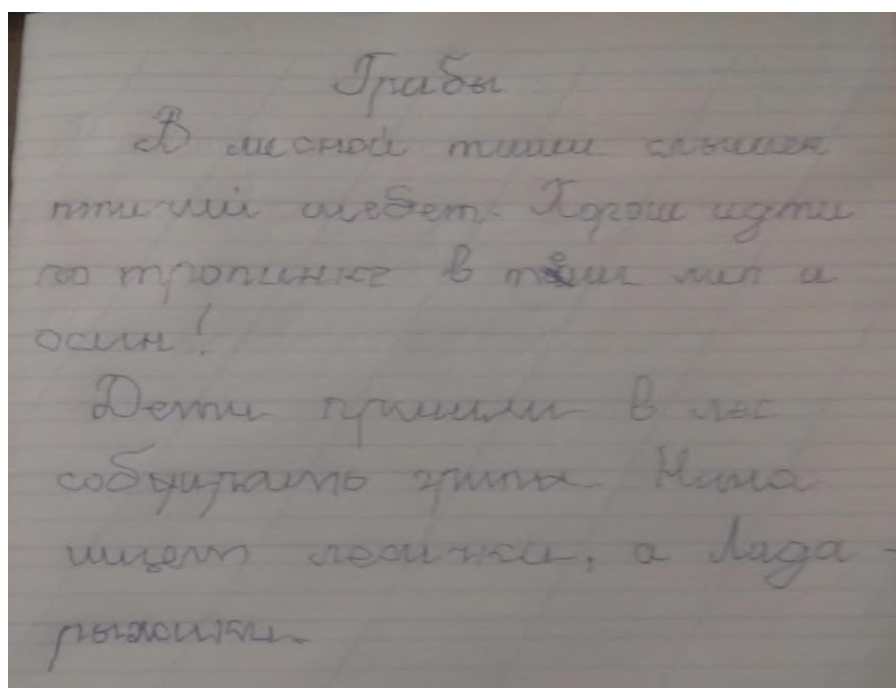 Грибы
В лесной тиши слышен
птичий щебет. Хорош идти
по тропинке в тени лип и
осин!
Дети пришли в лес
собирать грипы Нина
ищет лесички, а Лида -
рыжики